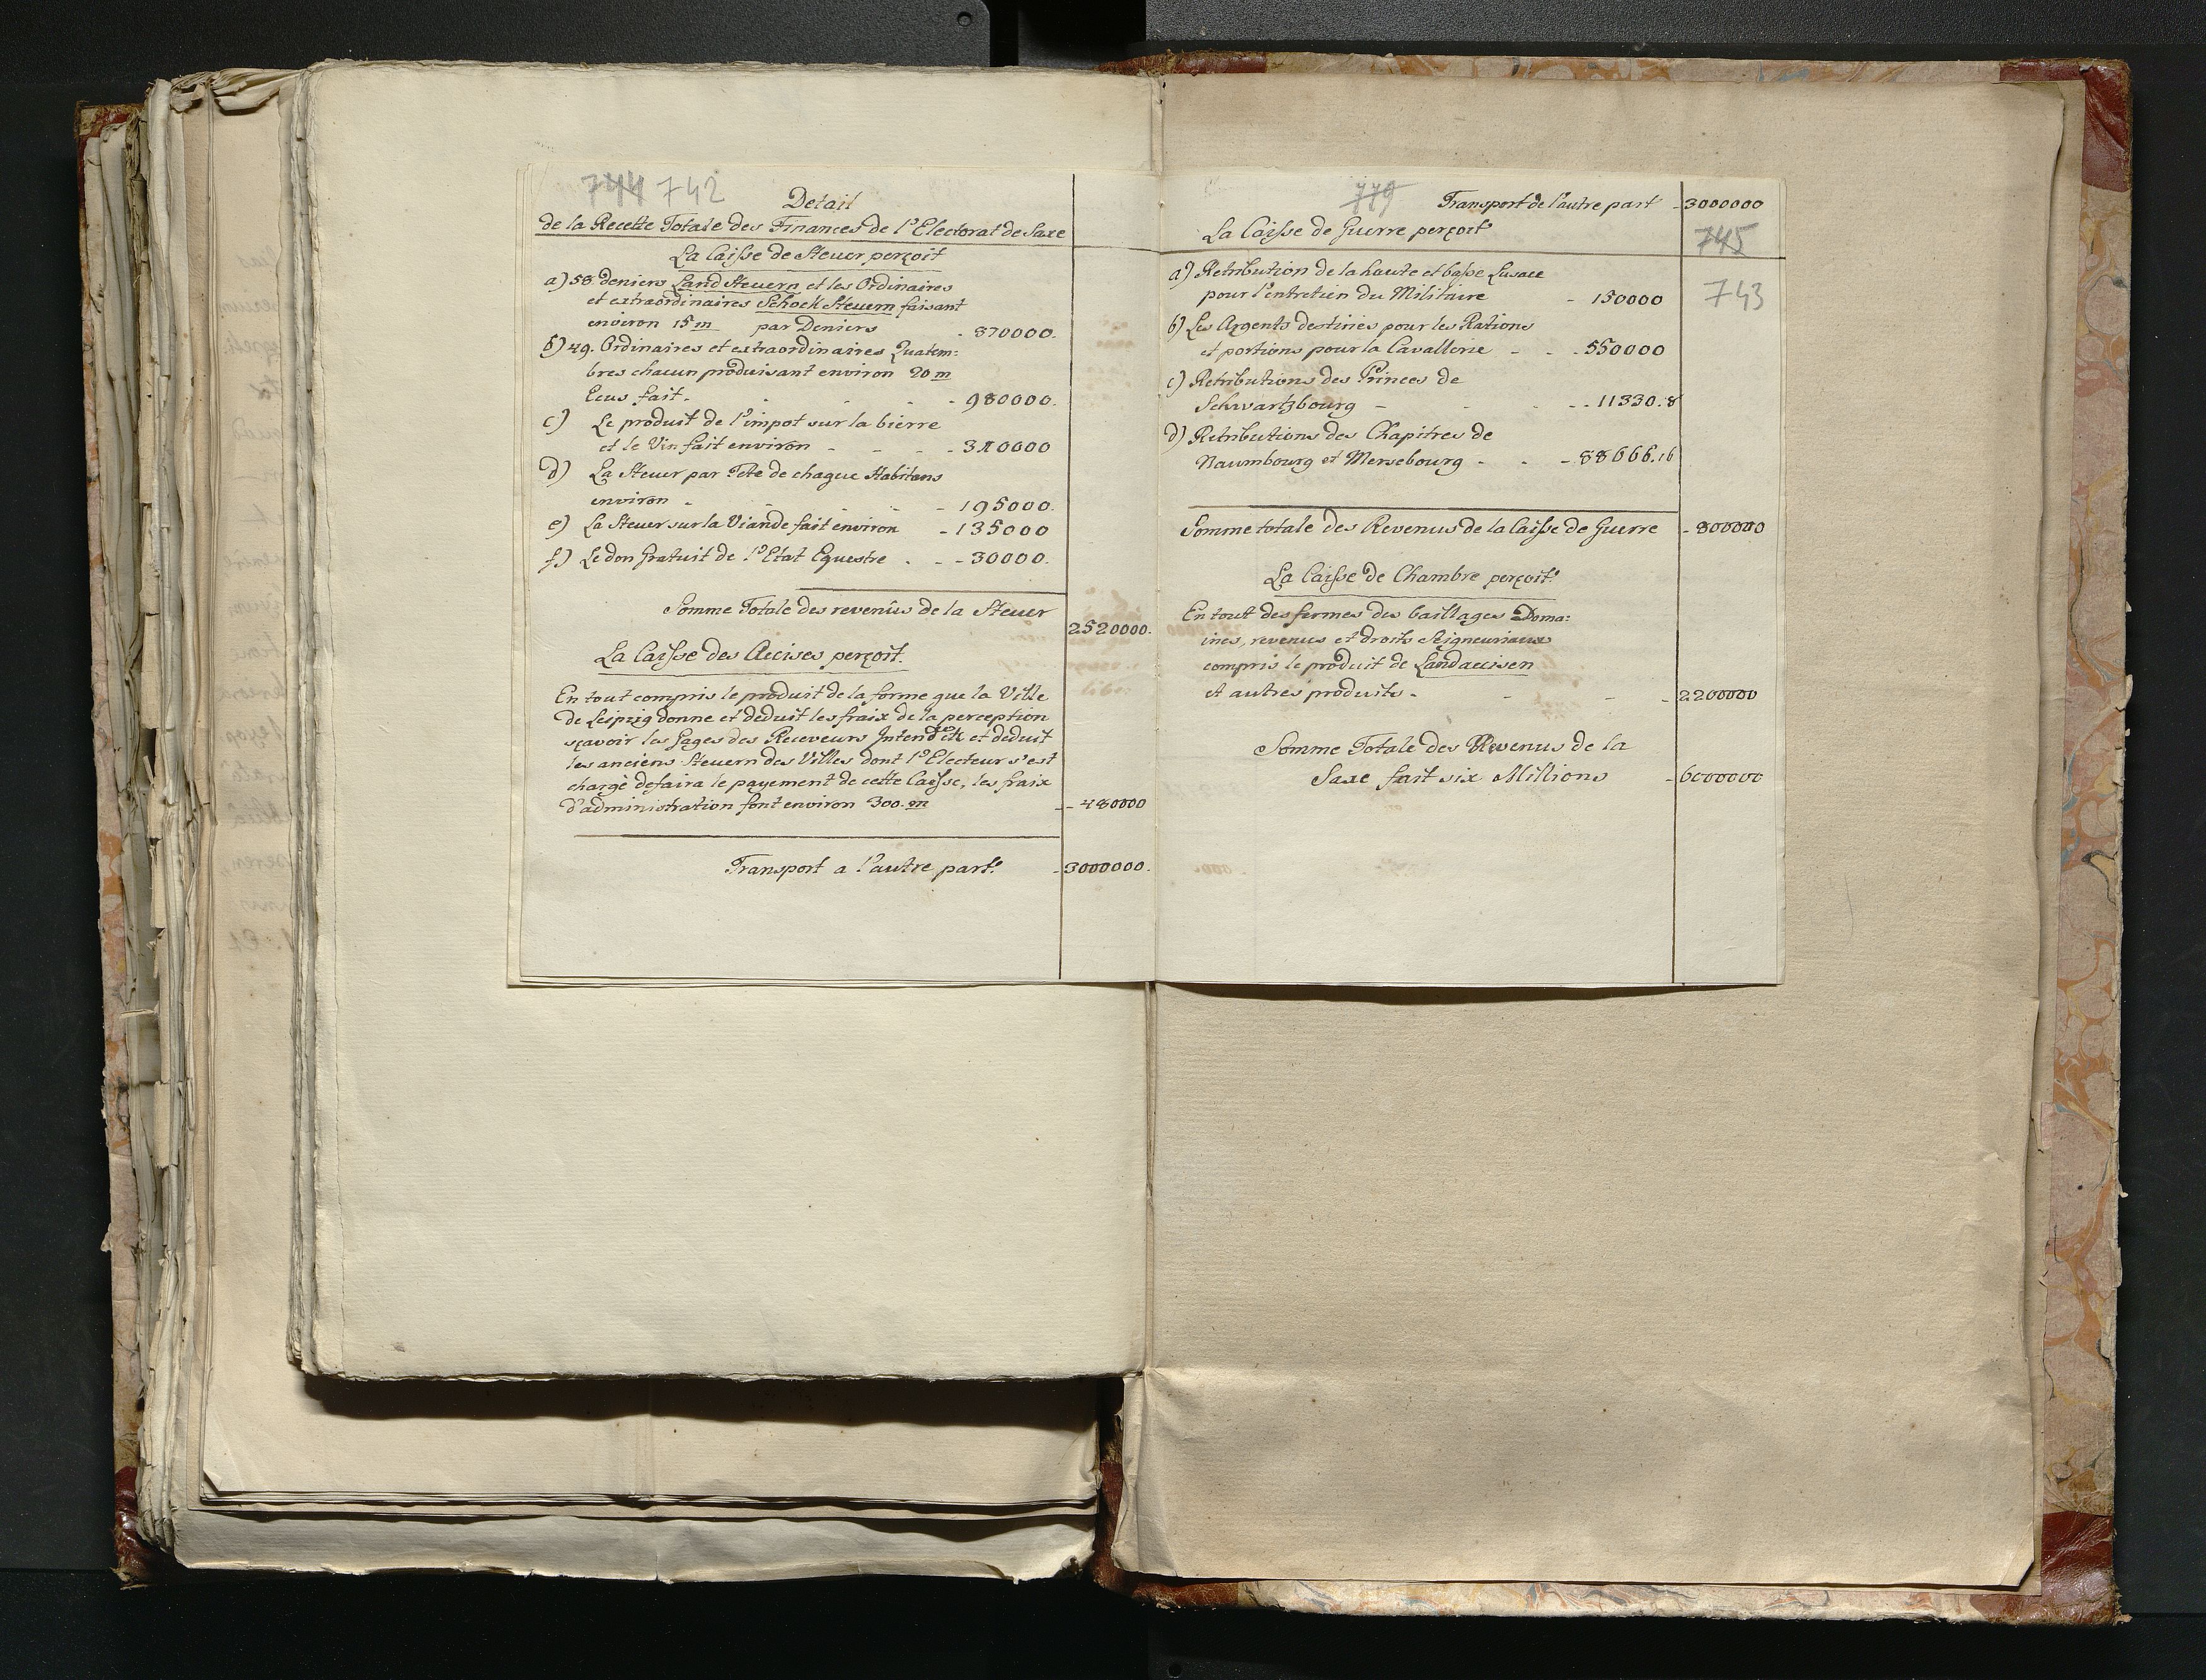 744 742
Detail
de la Recette Totale des Finances de l'Electorat de Saxe
La Caisse de Steuer perçoit
a) 58 deniers Land Steuern et les Ordinaires
et extraordinaires Schock Steuern faisant
environ 15 m par Deniers - 870000.
b) 49. Ordinaires et extraordinaires Quatem:
bres chacun produisant environ 20 m
Ecus fait. - 980000.
c) Le produit de l'impot sur la bierre
et le Vin fait environ - - - - 310000
d) La Steuer par Tête de chaque Habitans
environ - 195000.
e) La Steuer sur la Viande fait environ - 135000
f) Le don Gratuit de l'Etat Equestre . - - 30000.
Somme Totale des revenûs de la Steuer
2520000.
La Caisse des Accises perçoit.
En tout compris le produit de la forme que la Ville
de Leipzig donne et deduit les fraix de la perception
sçavoir les Gages des Receveurs Intend et deduit
les anciens Steuern des Villes dont l'Electeur s'est
chargé defaira le payement de cette Caisse, les fraix
d'administration font environ 300. m - - 480000
Transport a l'autre part. - 3000000.
779 Transport de l'autre part - 3000000
La Caisse de Guerre perçoit 745
a) Retribution de la haute et basse Lusace
pour l'entretien du Militaire - 150000 743
b) Les Argents destinés pour les Rations
et portions pour la Cavallerie - - - 550000
c) Retributions des Princes de
Schwartzbourg - - - - 11330.8
d) Retributions des Chapitres de
Naumbourg et Mersebourg - - - 88666.16
Somme totale des Revenus de la Caisse de Guerre - 800000
La Caisse de Chambre perçoit.
En tout des fermes des baillages Doma:
ines, revenus et droits Seigneuriaux
compris le produit de Landaccisen
et autres produits - - - - 2200000
Somme Totale des Revenus de la
Saxe fait six Millions - 6000000